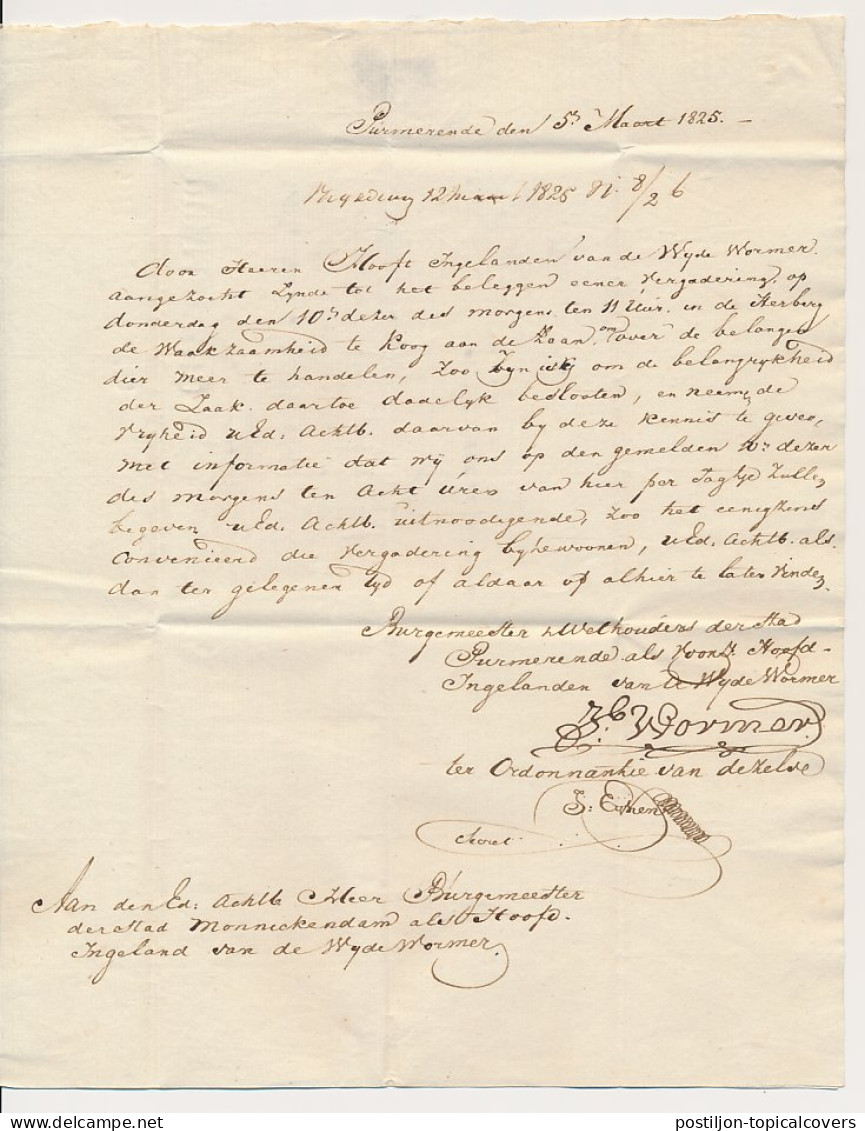 Purmerende den 5n Maart 1825. —
12 maart 1825 8/2 6
door Heeren Hooft Ingelanden van de Wyde Wormer
aangezocht Zynde tot het beleggen eener Vergadering, op
donderdag den 10n dezer des morgens ten 11 Uur. in de Herberg
de Waakzaamheid te Koog aan de Zaan, om over de belangen
dier meer te handelen, Zoo Zyn wy om de belangrykheid
der Zaak daartoe dadelyk beslooten, en neemen de
Vryheid uEd. Achtb. daarvan by deze kennis te geven,
met informatie dat wy ons op den gemelden dezer
des morgens ten Acht Uren van hier per Jagtje Zullen
begeven uEd. Achtb. uitnoodigende, Zoo het eenigzins
Convenieerd die Vergadering bytewoonen, uEd. Achtb. als
dan ter gelegener tyd of aldaar of alhier te laten Vinden,
Burgemeester & Wethouders der Stad
Purmerende als Hoofd-
Ingelanden van de Wyde Wormer
Wormer.
ter Ordonnantie van dezelve
Secret
Aan den Ed: Achtb Heer Burgemeester
der Stad Monnickendam als Hoofd.
Ingeland van de Wyde Wormer.
postiljon-topicalcovers